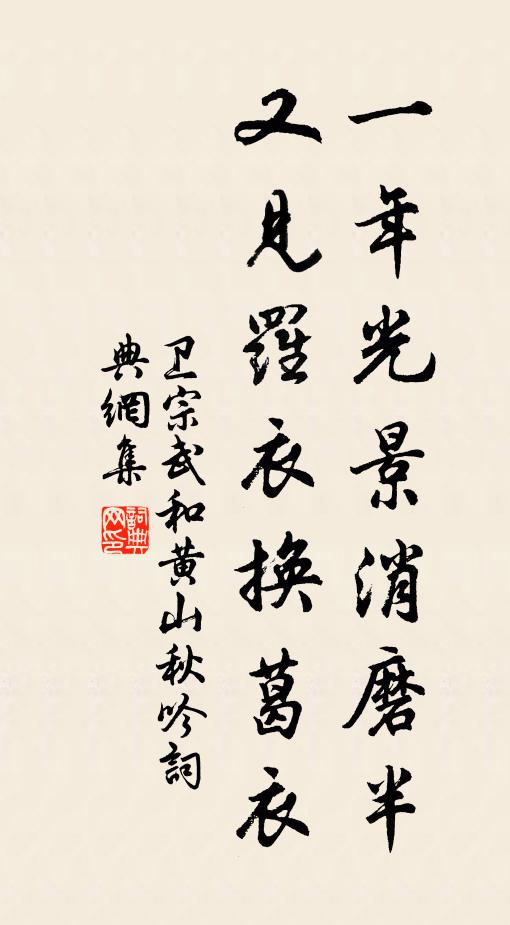 一年光景消磨半
又見羅衣換葛衣
卫宗武和黄山秋吟詞
典網集
詞典網印